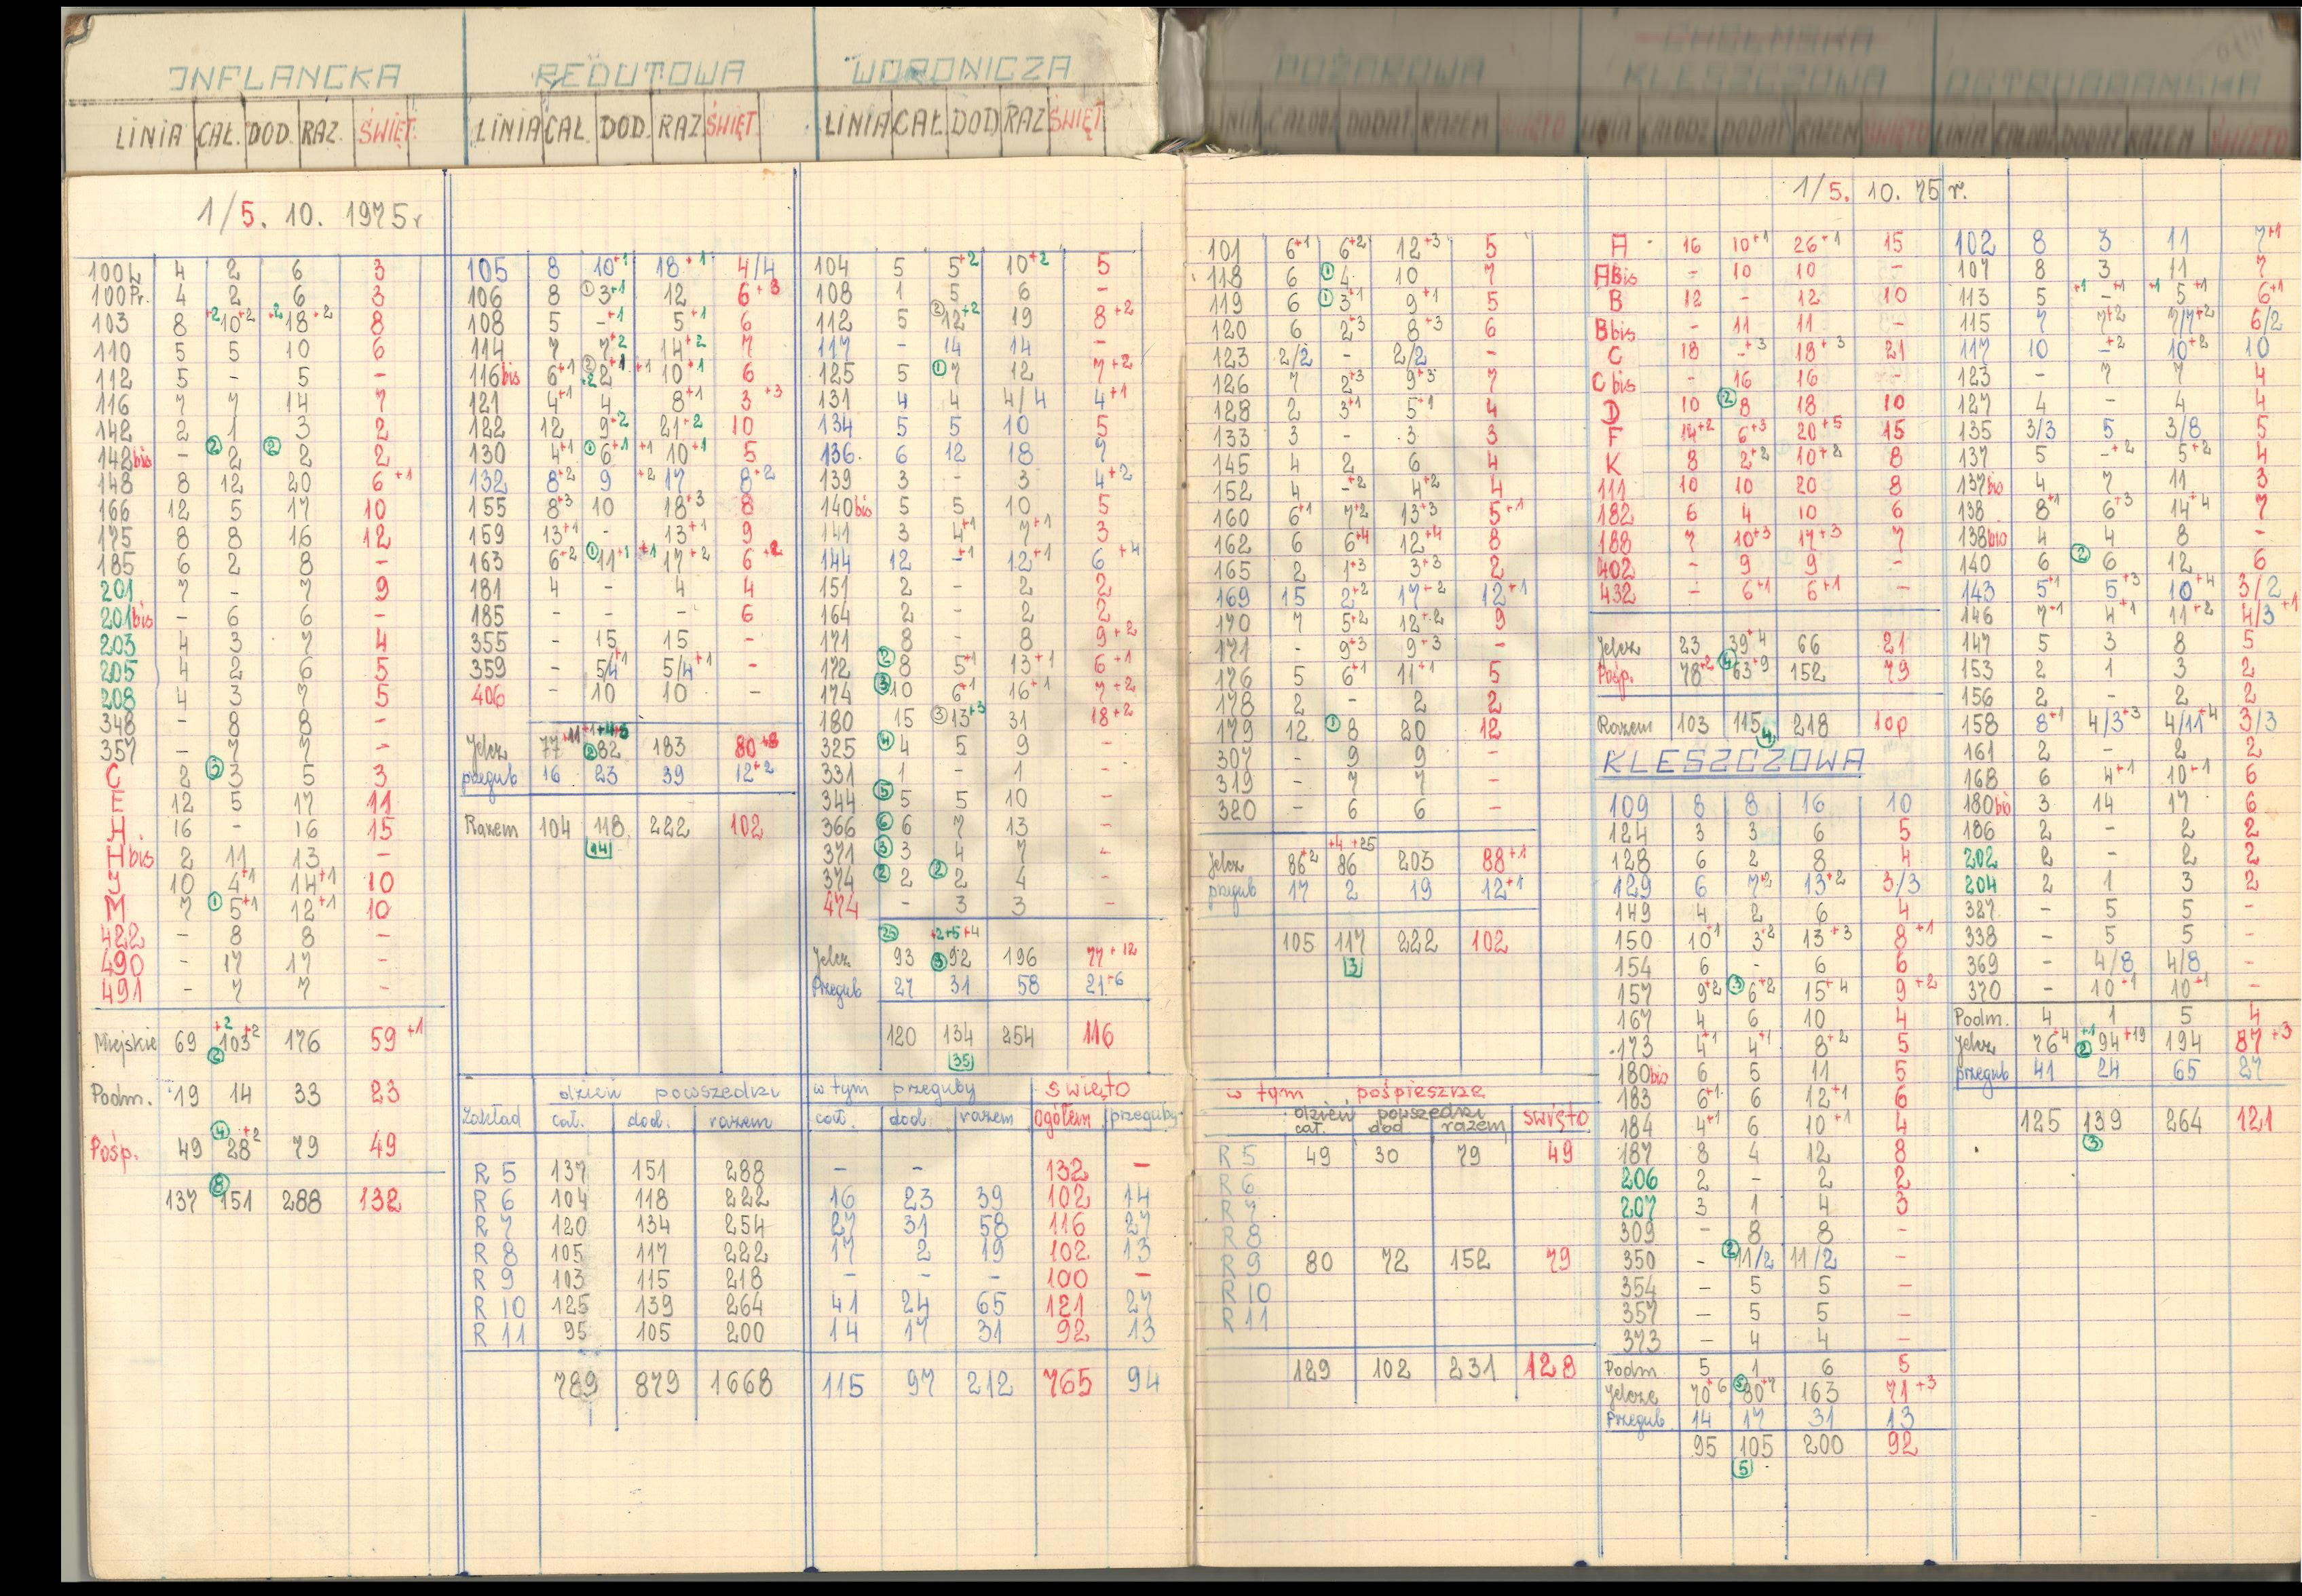 INFLANCKA
LINIA CAŁ. DOD. RAZ. ŚWIĘT.
1/5. 10. 1975r
100L 4 2 6 3
100Pr. 4 2 6 3
103 8 +2 10+2 +2 18+2 8
110 5 5 10 6
112 5 - 5 -
116 7 7 14 7
142 2 1 3 2
142bis - ② 2 ② 2 2
148 8 12 20 6+1
166 12 5 17 10
175 8 8 16 12
185 6 2 8 -
201 7 - 7 9
201bis - 6 6 -
203 4 3 7 4
205 4 2 6 5
208 4 3 7 5
348 - 8 8 -
357 - 7 7 -
C 2 ③ 3 5 3
E 12 5 17 11
H 16 - 16 15
H bis 2 11 13 -
J 10 4+1 14+1 10
M 7 ① 5+1 12+1 10
422 - 8 8 -
490 - 17 17 -
491 - 7 7 -
Miejskie 69 +2 103+2 ② 176 59+1
Podm. 19 14 33 23
Pośp. 49 ④ 28+2 79 49
137 ⑧ 151 288 132
REDUTOWA
LINIA CAŁ. DOD. RAZ ŚWIĘT.
105 8 10+1 18+1 4/4
106 8 ① 3+1 12 6+3
108 5 -+1 5+1 6
114 7 7+2 14+2 7
116bis 6+1 ② 2+1 +1 10+1 6
121 4+1 4 8+1 3+3
122 12 9+2 21+2 10
130 4+1 ① 6+1 +1 10+1 5
132 8+2 9 +2 17 8+2
155 8+3 10 18+3 8
159 13+1 - 13+1 9
163 6+2 ① 11+1 +1 17+2 6+2
181 4 - 4 4
185 - - - 6
355 - 15 15 -
359 - 5/4+1 5/4+1 -
406 - 10 10 -
Jelcz 77+11 ② 82 183 80+8
przegub 16 23 39 12+2
Razem 104 118 222 102
14
WORONICZA
LINIA CAŁ DOD RAZ ŚWIĘT
104 5 5+2 10+2 5
108 1 5 6 -
112 5 ② 12+2 19 8+2
117 - 14 14 -
125 5 ① 7 12 7+2
131 4 4 4/4 4+1
134 5 5 10 5
136. 6 12 18 9
139 3 - 3 4+2
140bis 5 5 10 5
141 3 4+1 7+1 3
144 12 -+1 12+1 6+4
151 2 - 2 2
164 2 - 2 2
171 8 - 8 9+2
172 ② 8 5+1 13+1 6+1
174 ③ 10 6+1 16+1 7+2
180 15 ③ 13+3 31 18+2
325 ④ 4 5 9 -
331 1 - 1 -
344 ⑤ 5 5 10 -
366 ⑥ 6 7 13 -
371 ③ 3 4 7 -
374 ② 2 ② 2 4 -
474 - 3 3 -
25 +2+5+4
Jelcz 93 ③ 92 196 77+12
Przegub 27 31 58 21+6
120 134 254 116
35
dzień powszedni w tym przeguby święto
Zakład cał. dod. razem cał. dod. razem ogółem przeguby
R 5 137 151 288 - - 132 -
R 6 104 118 222 16 23 39 102 14
R 7 120 134 254 27 31 58 116 27
R 8 105 117 222 17 2 19 102 13
R 9 103 115 218 - - - 100 -
R 10 125 139 264 41 24 65 121 27
R 11 95 105 200 14 17 31 92 13
789 879 1668 115 97 212 765 94
POŻAROWA
LINIA CAŁODZ DODAT RAZEM ŚWIĘTO
101 6+1 6+2 12+3 5
118 6 ① 4 10 7
119 6 ① 3+1 9+1 5
120 6 2+3 8+3 6
123 2/2 - 2/2 -
126 7 2+3 9+3 7
128 2 3+1 5+1 4
133 3 - 3 3
145 4 2 6 4
152 4 -+2 4+2 4
160 6+1 7+2 13+3 5+1
162 6 6+4 12+4 8
165 2 1+3 3+3 2
169 15 2+2 17+2 12+1
170 7 5+2 12+2 9
171 - 9+3 9+3 -
176 5 6+1 11+1 5
178 2 - 2 2
179 12 ① 8 20 12
307 - 9 9 -
319 - 7 7 -
320 - 6 6 -
+4 +25
Jelcz 86+2 86 203 88+1
przegub 17 2 19 12+1
105 117 222 102
3
w tym pośpieszne
dzień powszedni święto
cał. dod razem
R 5 49 30 79 49
R 6
R 7
R 8
R 9 80 72 152 79
R 10
R 11
129 102 231 128
KLESZCZOWA
LINIA CAŁODZ DODAT RAZEM ŚWIĘTO
1/5. 10. 75 r.
A 16 10+1 26+1 15
A bis - 10 10 -
B 12 - 12 10
B bis - 11 11 -
C 18 -+3 18+3 21
C bis - 16 16 -
D 10 ② 8 18 10
F 14+2 6+3 20+5 15
K 8 2+2 10+2 8
111 10 10 20 8
182 6 4 10 6
188 7 10+3 17+3 7
402 - 9 9 -
432 - 6+1 6+1 -
Jelcz 23 39+4 66 21
Pośp. 78+2 ④ 63+9 152 79
Razem 103 115 218 100
④
KLESZCZOWA
109 8 8 16 10
124 3 3 6 5
128 6 2 8 4
129 6 7+2 13+2 3/3
149 4 2 6 4
150 10+1 3+2 13+3 8+1
154 6 - 6 6
157 9+2 ③ 6+2 15+4 9+2
167 4 6 10 4
173 4+1 4+1 8+2 5
180bis 6 5 11 5
183 6+1 6 12+1 6
184 4+1 6 10+1 4
187 8 4 12 8
206 2 - 2 2
207 3 1 4 3
309 - 8 8 -
350 - ② 11/2 11/2 -
354 - 5 5 -
357 - 5 5 -
373 - 4 4 -
Podm 5 1 6 5
Jelcze 70+6 ⑤ 80+7 163 71+3
Przegub. 14 17 31 13
95 105 200 92
⑤
OSTROBRAMSKA
LINIA CAŁODZ DODAT RAZEM ŚWIĘTO
102 8 3 11 7+1
107 8 3 11 7
113 5 +1 -+1 +1 5+1 6+1
115 7 7+2 7/7+2 6/2
117 10 -+2 10+2 10
123 - 7 7 4
127 4 - 4 4
135 3/3 5 3/8 5
137 5 -+2 5+2 4
137bis 4 7 11 3
138 8+1 6+3 14+4 7
138bis 4 4 8 -
140 6 ② 6 12 6
143 5+1 5+3 10+4 3/2
146 7+1 4+1 11+2 4/3+1
147 5 3 8 5
153 2 1 3 2
156 2 - 2 2
158 8+1 4/3+3 4/11+4 3/3
161 2 - 2 2
168 6 4+1 10+1 6
180bis 3 14 17 6
186 2 - 2 2
202 2 - 2 2
204 2 1 3 2
327 - 5 5 -
338 - 5 5 -
369 - 4/8 4/8 -
370 - 10+1 10+1 -
Podm. 4 1 5 4
Jelcz 76+4 +1 ② 94+19 194 87+3
przegub 41 24 65 27
125 139 264 121
③